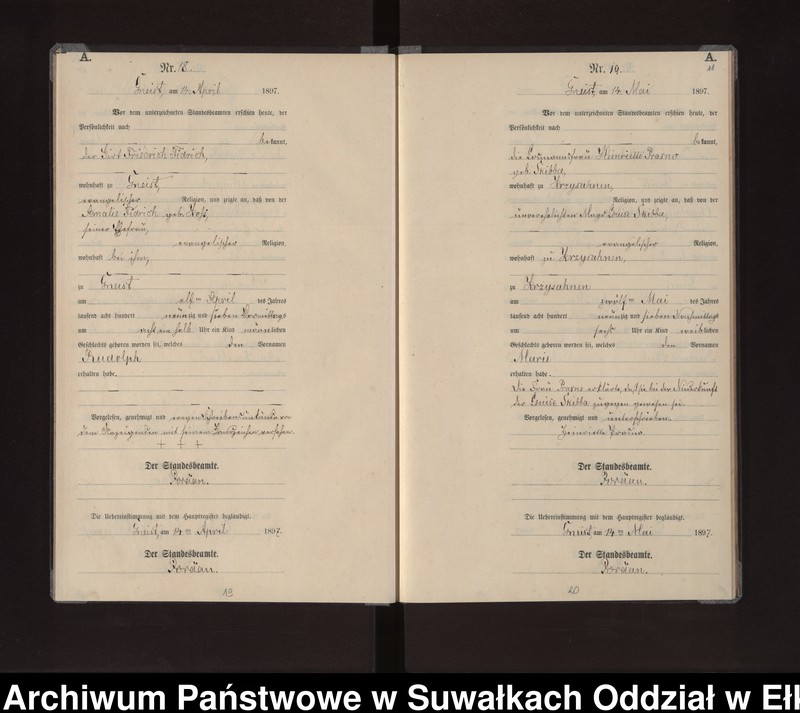 A.
Nr. 18.
Gneist, am 14. April 1897.
Vor dem unterzeichneten Standesbeamten erschien heute, der
Persönlichkeit nach
bekannt,
der Wirt Friedrich Fidrich,
wohnhaft zu Gneist,
evangelischer Religion, und zeigte an, daß von der
Amalie Fidrich geb.
seiner Ehefrau,
evangelischer Religion,
wohnhaft bei ihm,
zu Gneist
am elften April des Jahres
tausend acht hundert neunzig und sieben Vormittags
um acht ein halb Uhr ein Kind männlichen
Geschlechts geboren worden sei, welches den Vornamen
Rudolph
erhalten habe.
Vorgelesen, genehmigt und wegen Schreibensunkunde von
dem Anzeigenden mit seinem Handzeichen versehen.
+ + +
Der Standesbeamte.
Pordan.
Die Uebereinstimmung mit dem Hauptregister beglaubigt.
Gneist, am 14ten April 1897.
Der Standesbeamte.
Pordan.
19
A.
Nr. 19.
Gneist, am 14. Mai 1897.
Vor dem unterzeichneten Standesbeamten erschien heute, der
Persönlichkeit nach
bekannt,
die Losmannsfrau Heinriette Prasno
geb. Skibba,
wohnhaft zu Krzysahnen,
Religion, und zeigte an, daß von der
unverehelichten Magd Louise Skibba,
evangelischer Religion,
wohnhaft zu Krzysahnen,
zu Krzysahnen
am zwölften Mai des Jahres
tausend acht hundert neunzig und sieben Nachmittags
um sechs Uhr ein Kind weiblichen
Geschlechts geboren worden sei, welches den Vornamen
Marie
erhalten habe.
Die Frau Prasno erklärte, daß sie bei der Niederkunft
der Louise Skibba zugegen gewesen sei.
Vorgelesen, genehmigt und unterschrieben.
Heinriette Prasno
Der Standesbeamte.
Pordan.
Die Uebereinstimmung mit dem Hauptregister beglaubigt.
Gneist, am 14ten Mai 1897.
Der Standesbeamte.
Pordan.
20
Archiwum Państwowe w Suwałkach Oddział w Eł